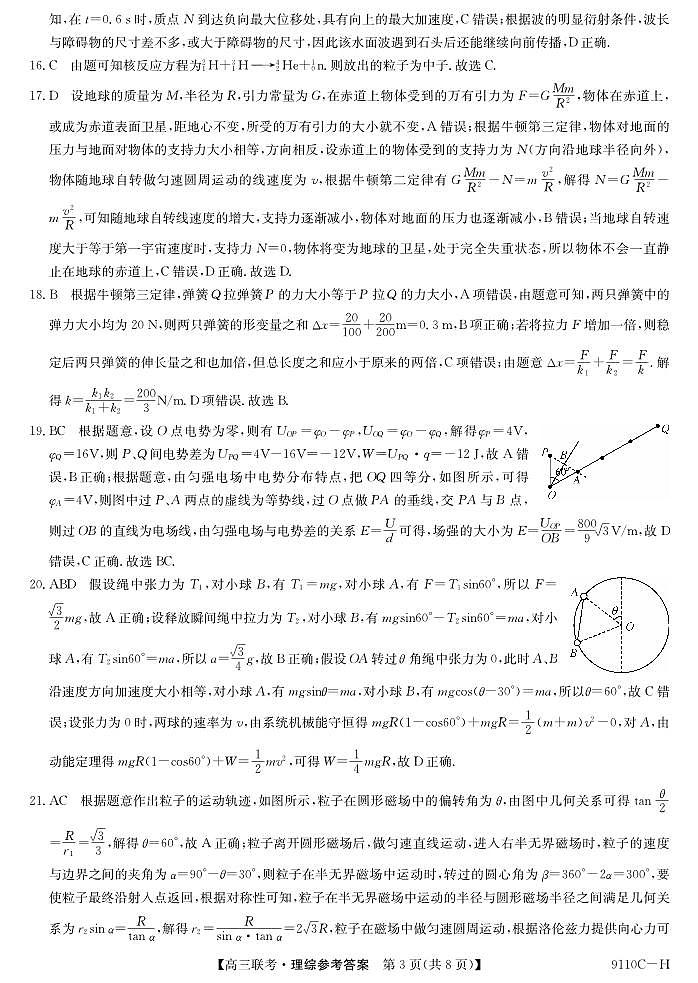 知,在 t=0.6 s 时,质点 N 到达负向最大位移处,具有向上的最大加速度,C 错误;根据波的明显衍射条件,波长
与障碍物的尺寸差不多,或大于障碍物的尺寸,因此该水面波遇到石头后还能继续向前传播,D 正确.
16. C 由题可知核反应方程为²₁H+³₁H⟶⁴₂He+¹₀n. 则放出的粒子为中子. 故选 C.
17. D 设地球的质量为 M,半径为 R,引力常量为 G,在赤道上物体受到的万有引力为 F=G Mm/R²,物体在赤道上,
或成为赤道表面卫星,距地心不变,所受的万有引力的大小就不变,A 错误;根据牛顿第三定律,物体对地面的
压力与地面对物体的支持力大小相等,方向相反,设赤道上的物体受到的支持力为 N(方向沿地球半径向外),
物体随地球自转做匀速圆周运动的线速度为 v,根据牛顿第二定律有 G Mm/R² −N=m v²/R,解得 N=G Mm/R² −
m v²/R,可知随地球自转线速度的增大,支持力逐渐减小,物体对地面的压力也逐渐减小,B 错误;当地球自转速
度大于等于第一宇宙速度时,支持力 N=0,物体将变为地球的卫星,处于完全失重状态,所以物体不会一直静
止在地球的赤道上,C 错误,D 正确. 故选 D.
18. B 根据牛顿第三定律,弹簧 Q 拉弹簧 P 的力大小等于 P 拉 Q 的力大小,A 项错误,由题意可知,两只弹簧中的
弹力大小均为 20 N,则两只弹簧的形变量之和 Δx=20/100+20/200 m=0.3 m,B 项正确;若将拉力 F 增加一倍,则稳
定后两只弹簧的伸长量之和也加倍,但总长度之和应小于原来的两倍,C 项错误;由题意 Δx=F/k₁+F/k₂=F/k. 解
得 k=k₁k₂/(k₁+k₂)=200/3 N/m. D 项错误. 故选 B.
19. BC 根据题意,设 O 点电势为零,则有 U_OP=φ_O−φ_P,U_OQ=φ_O−φ_Q,解得 φ_P=4V,
φ_Q=16V,则 P、Q 间电势差为 U_PQ=4V−16V=−12V,W=U_PQ·q=−12 J,故 A 错
误,B 正确;根据题意,由匀强电场中电势分布特点,把 OQ 四等分,如图所示,可得
φ_A=4V,则图中过 P、A 两点的虚线为等势线,过 O 点做 PA 的垂线,交 PA 与 B 点,
则过 OB 的直线为电场线,由匀强电场与电势差的关系 E=U/d 可得,场强的大小为 E=U_OP/OB=800/9 √3 V/m,故 D
错误,C 正确. 故选 BC.
P
B
60°
A
O
Q
20. ABD 假设绳中张力为 T₁,对小球 B,有 T₁=mg,对小球 A,有 F=T₁sin60°,所以 F=
√3/2 mg,故 A 正确;设释放瞬间绳中拉力为 T₂,对小球 B,有 mgsin60°−T₂sin60°=ma,对小
球 A,有 T₂sin60°=ma,所以 a=√3/4 g,故 B 正确;假设 OA 转过 θ 角绳中张力为 0,此时 A、B
沿速度方向加速度大小相等,对小球 A,有 mgsinθ=ma,对小球 B,有 mgcos(θ−30°)=ma,所以 θ=60°,故 C 错
误;设张力为 0 时,两球的速率为 v,由系统机械能守恒得 mgR(1−cos60°)+mgR=1/2(m+m)v²−0,对 A,由
动能定理得 mgR(1−cos60°)+W=1/2 mv²,可得 W=1/4 mgR,故 D 正确.
A
θ
O
B
21. AC 根据题意作出粒子的运动轨迹,如图所示,粒子在圆形磁场中的偏转角为 θ,由图中几何关系可得 tan θ/2
=R/r₁=√3/3,解得 θ=60°,故 A 正确;粒子离开圆形磁场后,做匀速直线运动,进入右半无界磁场时,粒子的速度
与边界之间的夹角为 α=90°−θ=30°,则粒子在半无界磁场中运动时,转过的圆心角为 β=360°−2α=300°,要
使粒子最终沿射入点返回,根据对称性可知,粒子在半无界磁场中运动的半径与圆形磁场半径之间满足几何关
系为 r₂sin α=R/tan α,解得 r₂=R/(sin α·tan α)=2√3R,粒子在磁场中做匀速圆周运动,根据洛伦兹力提供向心力可
【高三联考·理综参考答案 第 3 页(共 8 页)】 9110C−H